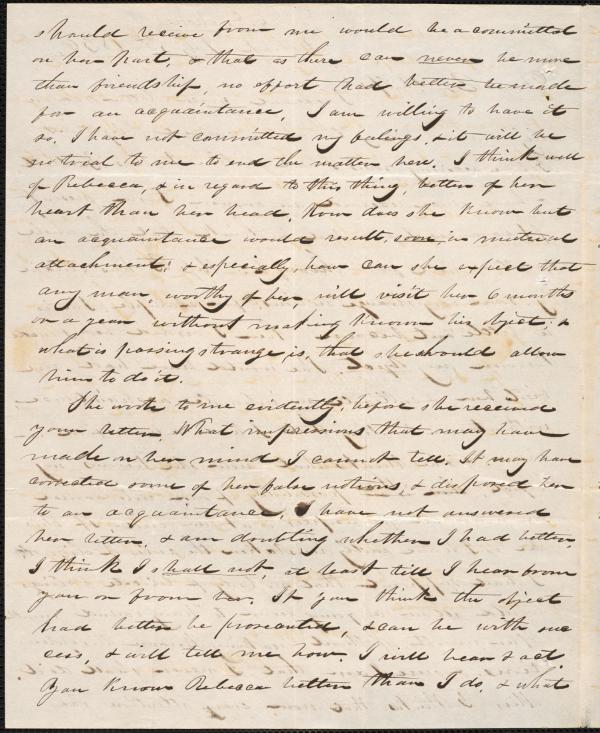 should receive from me would be a committal
on her part, & that as there can never be more
than friendship, no effort had better be made
for an acquaintance, I am willing to have it
so. I have not committed my feelings, & it will be
no trial to me to end the matter here. I think well
of Rebecca, & in regard to this thing, better of her
heart than her head. How does she know but
an acquaintance would result, soon, in mutual
attachment; & especially, how can she expect that
any man, worthy of her, will visit her 6 months
or a year without making known his object; &
what is passing strange is, that she should allow
him to do it.
She wrote to me evidently, before she received
your letter. What impressions that may have
made on her mind I cannot tell. It may have
corrected some of her false notions, & disposed her
to an acquaintance. I have not answered
her letter, & am doubting whether I had better.
I think I shall not, at least till I hear from
you or from her. If you think the object
had better be prosecuted, & can be with suc
cess, & will tell me how. I will hear & act.
You know Rebecca better than I do, & what